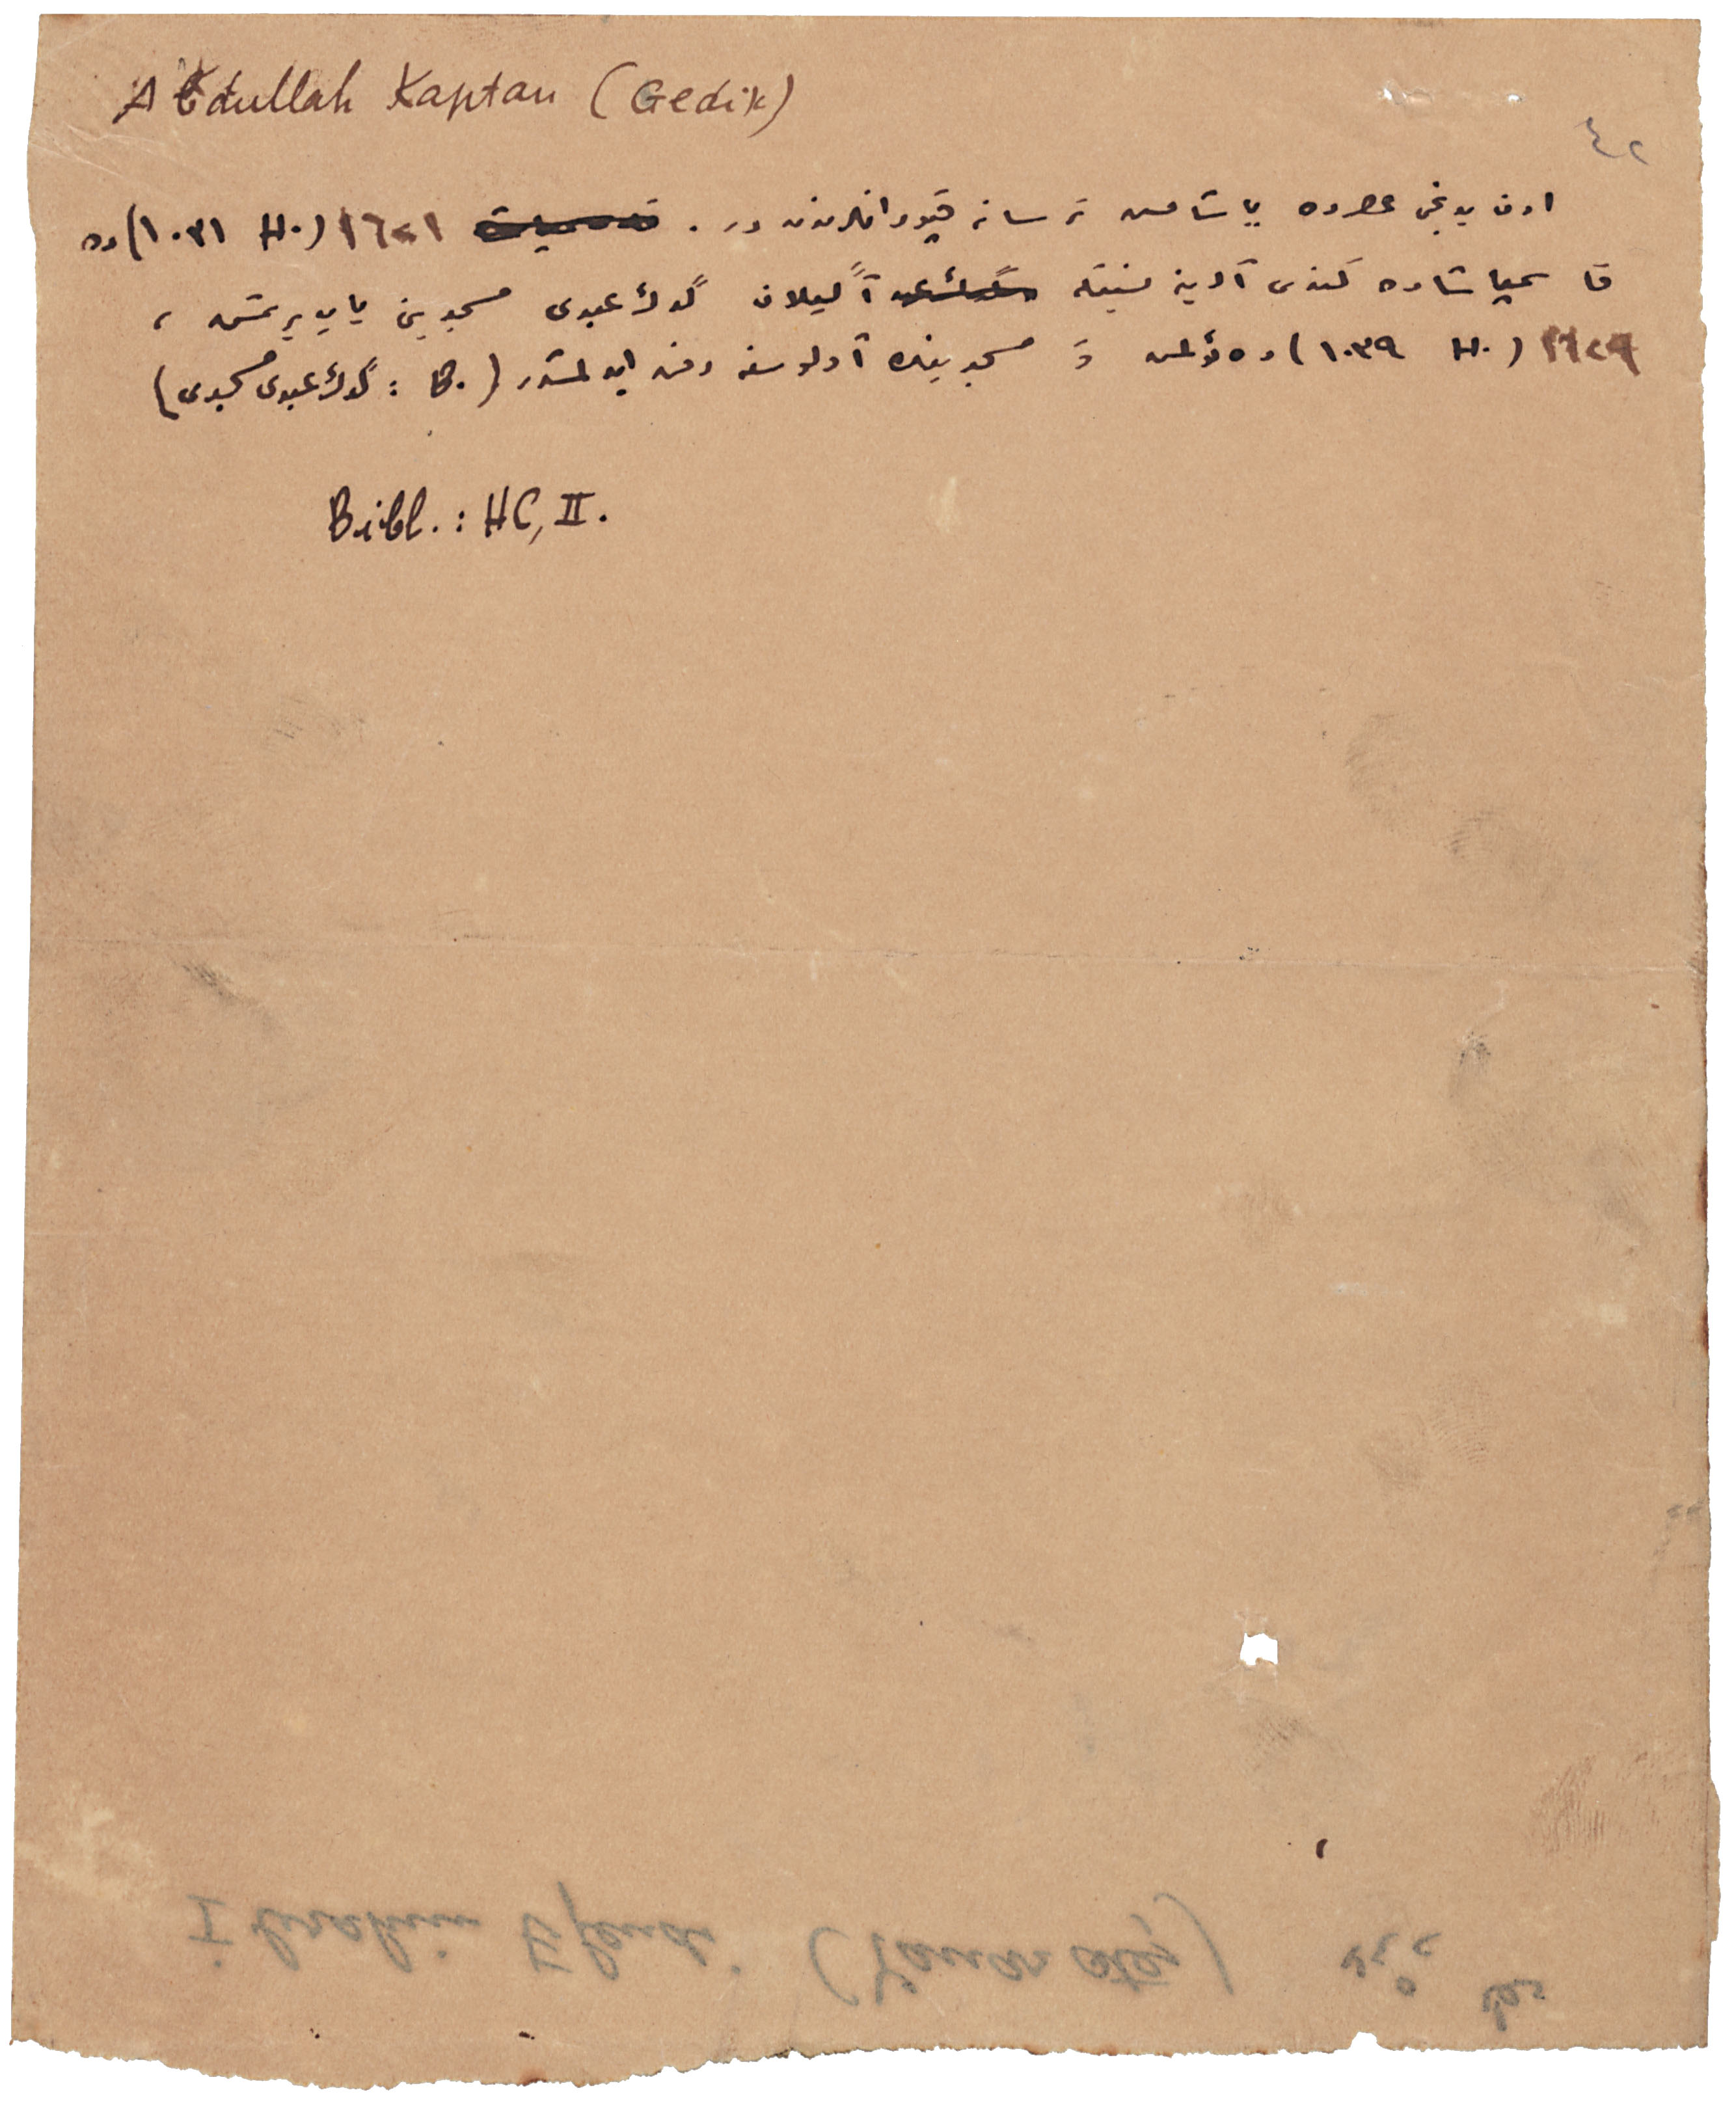 Abdullah Kaptan (Gedik)
٤٢
اون یدنجی عصرده یاشامش ترسانه قپوداנلرندن در. ١٦٢١ (H. ١٠٣١) ده
قاسمپاشاده کندی آدینه نسبتله آڭیلان گدك عبدی مسجدینی یاپدیرتمش ،
١٦٢٩ (H. ١٠٣٩) ده ئولمش وَ مسجدینڭ آولوسنه دفن ایدلمشدر (B. : گدك عبدی مسجدی)
Bibl. : HC, II.
İbrahim Efendi (Yanan ateş)